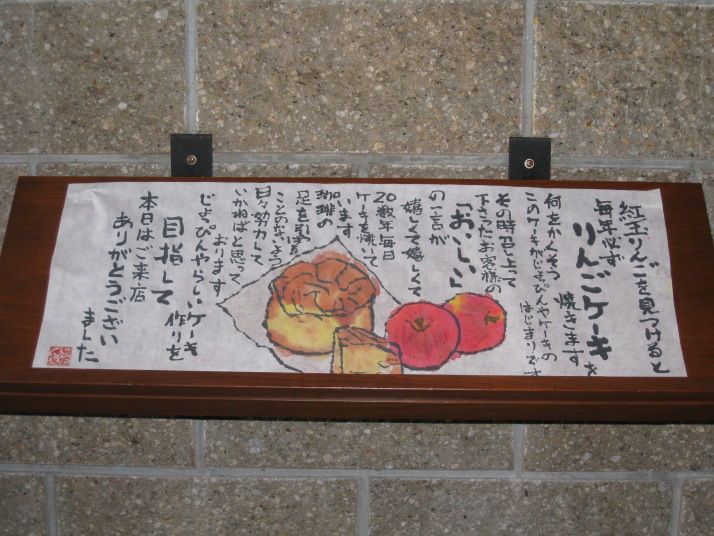 紅玉りんごを見つけると
毎年必ず
りんごケーキを
焼きます
何をかくそう
このケーキがじょっぴんやケーキの
はじまりです
その時召し上って
下さったお客様の
「おいしい」
の一言が
嬉しくて嬉しくて
20数年毎日
ケーキを焼いて
います
珈琲の
足を引ぱる
ことのないよう
日々努力して
いかねばと思って
おります
じょっぴんやらしいケーキ
作りを
目指して
本日はご来店
ありがとうござい
ました